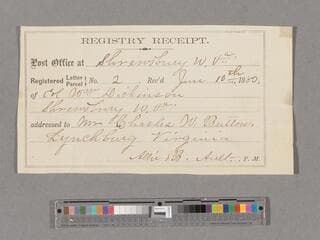 REGISTRY RECEIPT.
Post Office at Shrewsbury W. Va.
Registered Letter Parcel No. 2 Rec'd June 10th, 1880.
of Col Wm Dickinson
Shrewsbury W. Va.
addressed to Mr. Charles W. Button
Lynchburg Virginia
P. M.